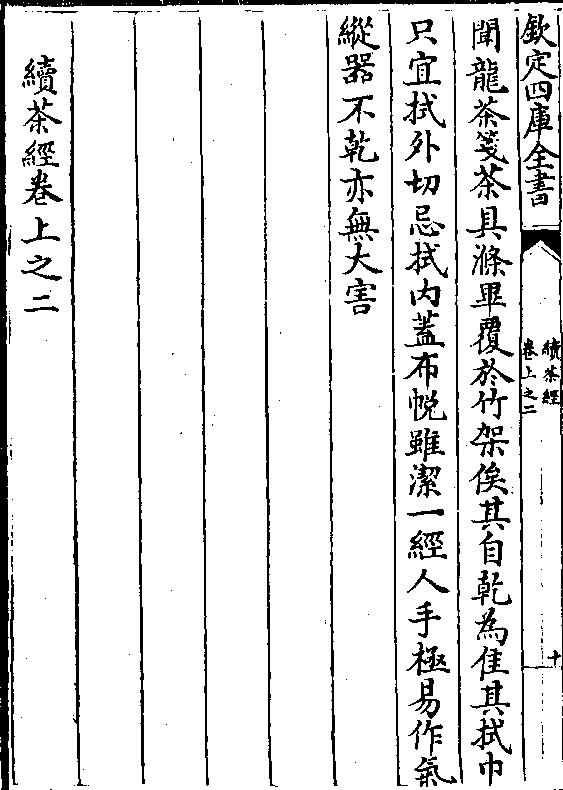 欽定四庫全書
續茶經
卷上之二
十
聞龍茶箋茶具滌畢覆於竹架俟其自乾為佳其拭巾
只宜拭外切忌拭内蓋布帨雖潔一經人手極易作氣
縱器不乾亦無大害
續茶經卷上之二